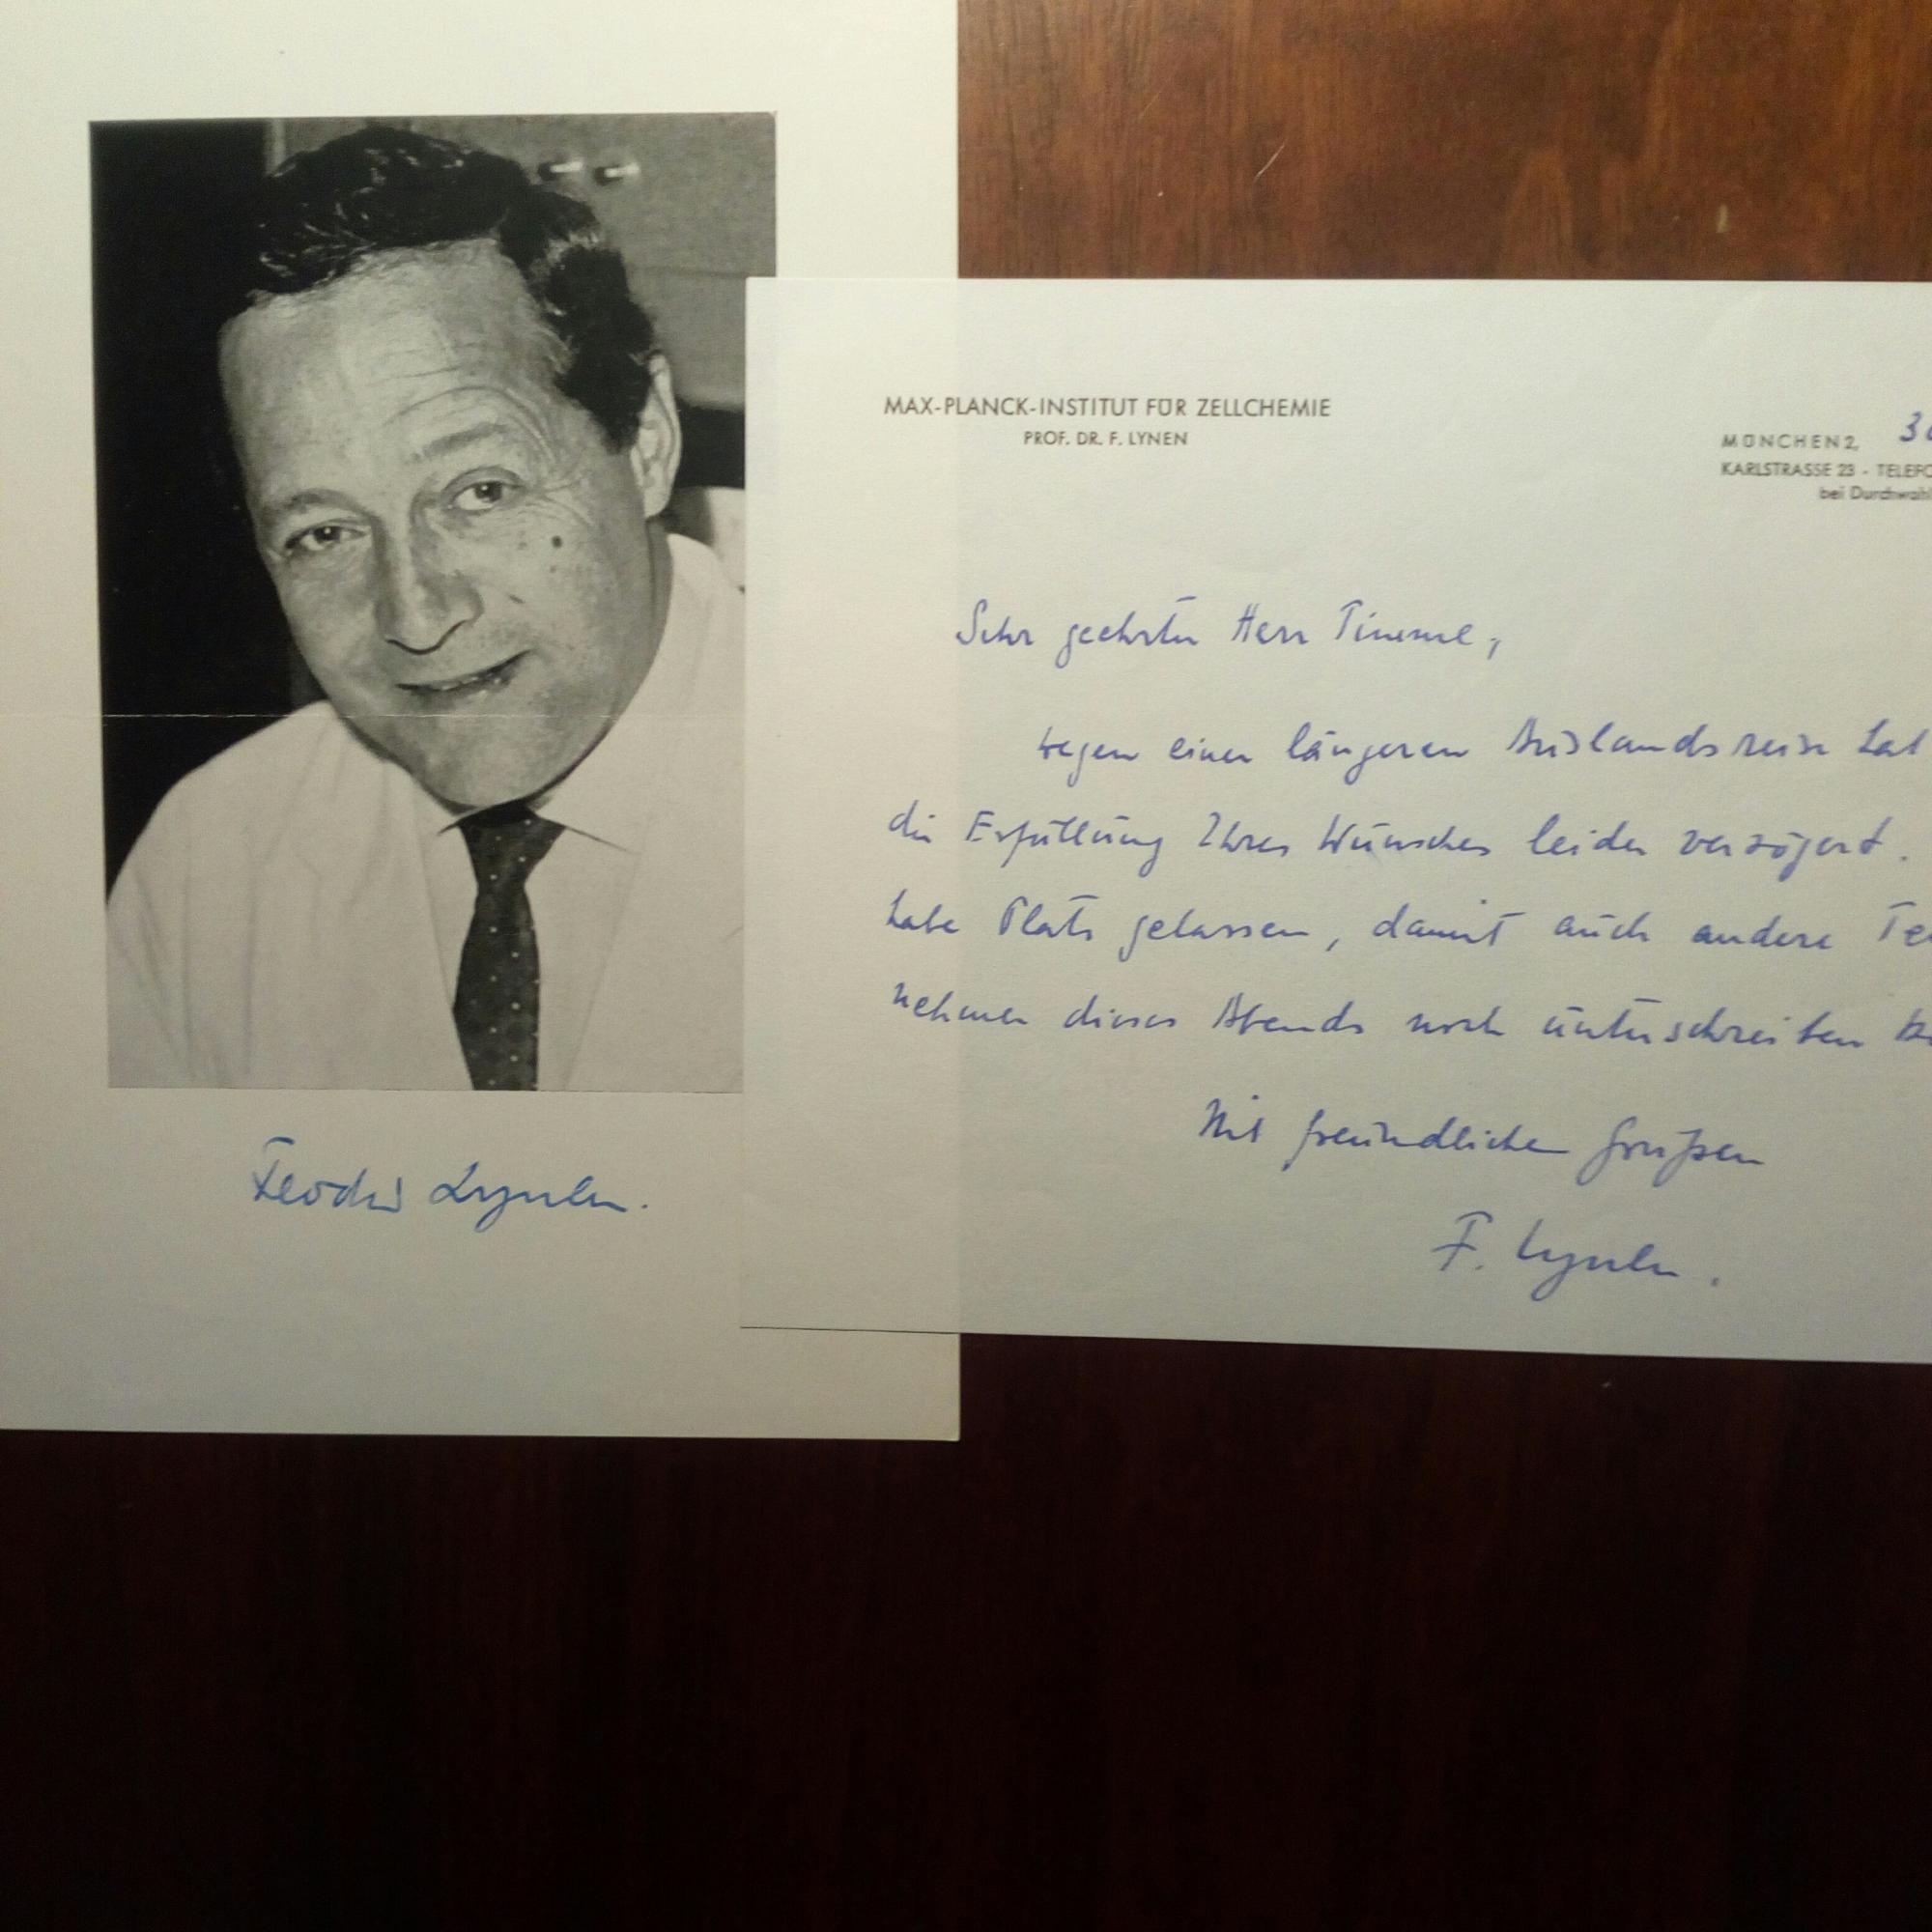 Feodor Lynen.
MAX-PLANCK-INSTITUT FÜR ZELLCHEMIE
PROF. DR. F. LYNEN
MÜNCHEN 2,
KARLSTRASSE 23 - TELEFO
bei Durchwahl
Sehr geehrter Herr Timme,
wegen einer längeren Auslandsreise hat
die Erfüllung Ihres Wunsches leider verzögert.
habe Platz gelassen, damit auch andere Te
nehmer dieses Abends noch unterschreiben
Mit freundlichen Grüßen
F. Lynen.